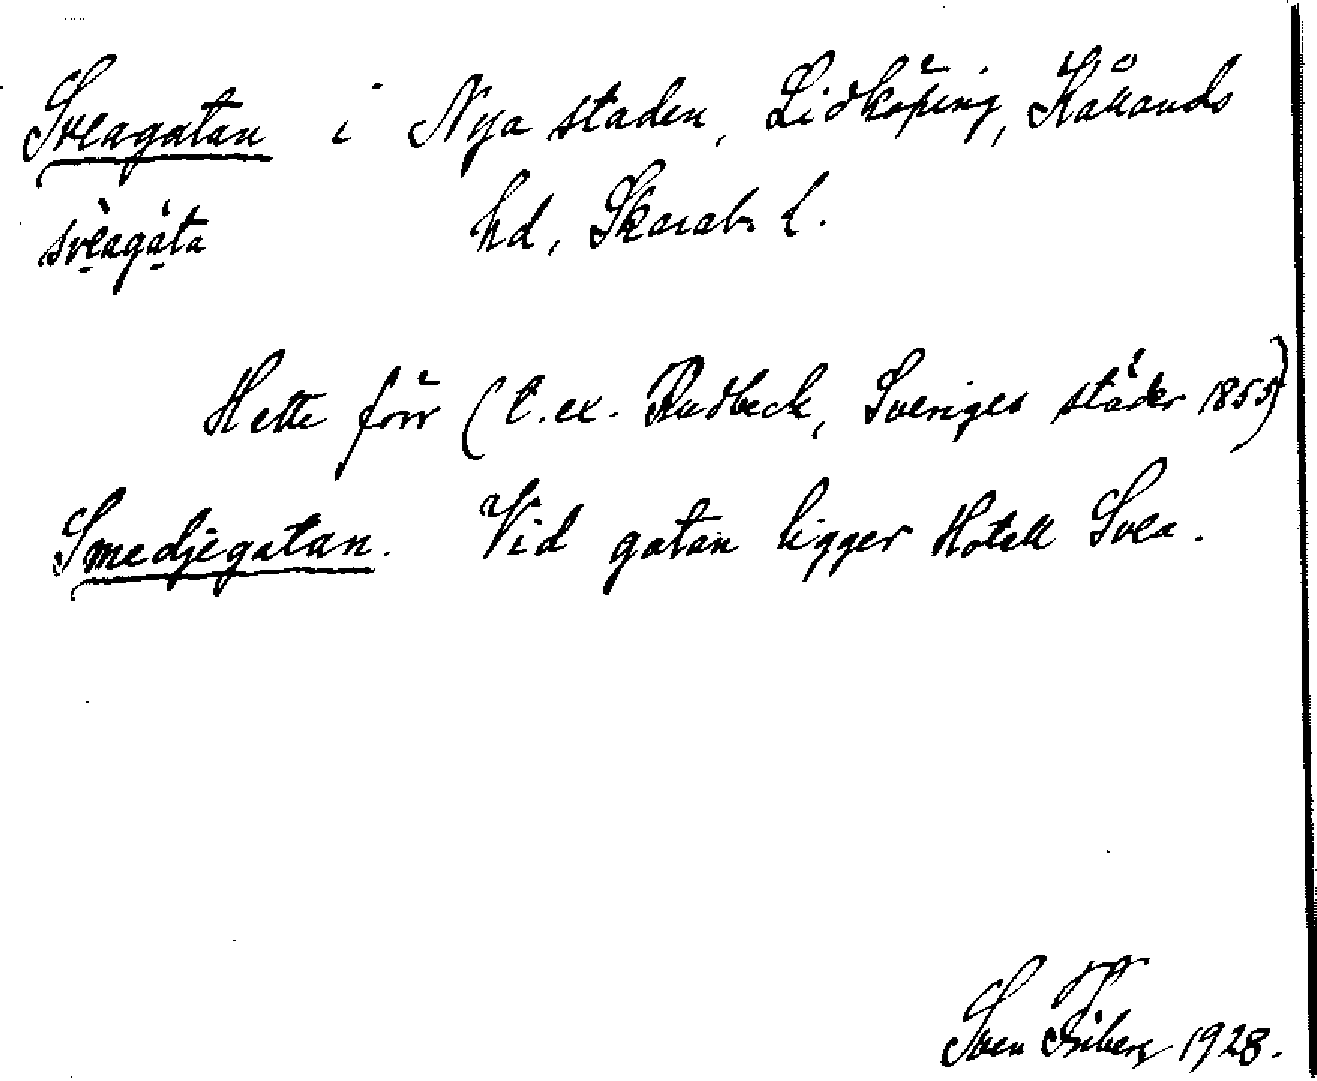 Sveagatan i Nya staden, Lidköping, Kållands
svèagàta hd, Skarab. l.
Hette förr (t. ex. Rudbeck, Sveriges städer 1855)
Smedjegatan. Vid gatan ligger Hotell Svea.
Sven Friberg 1928.